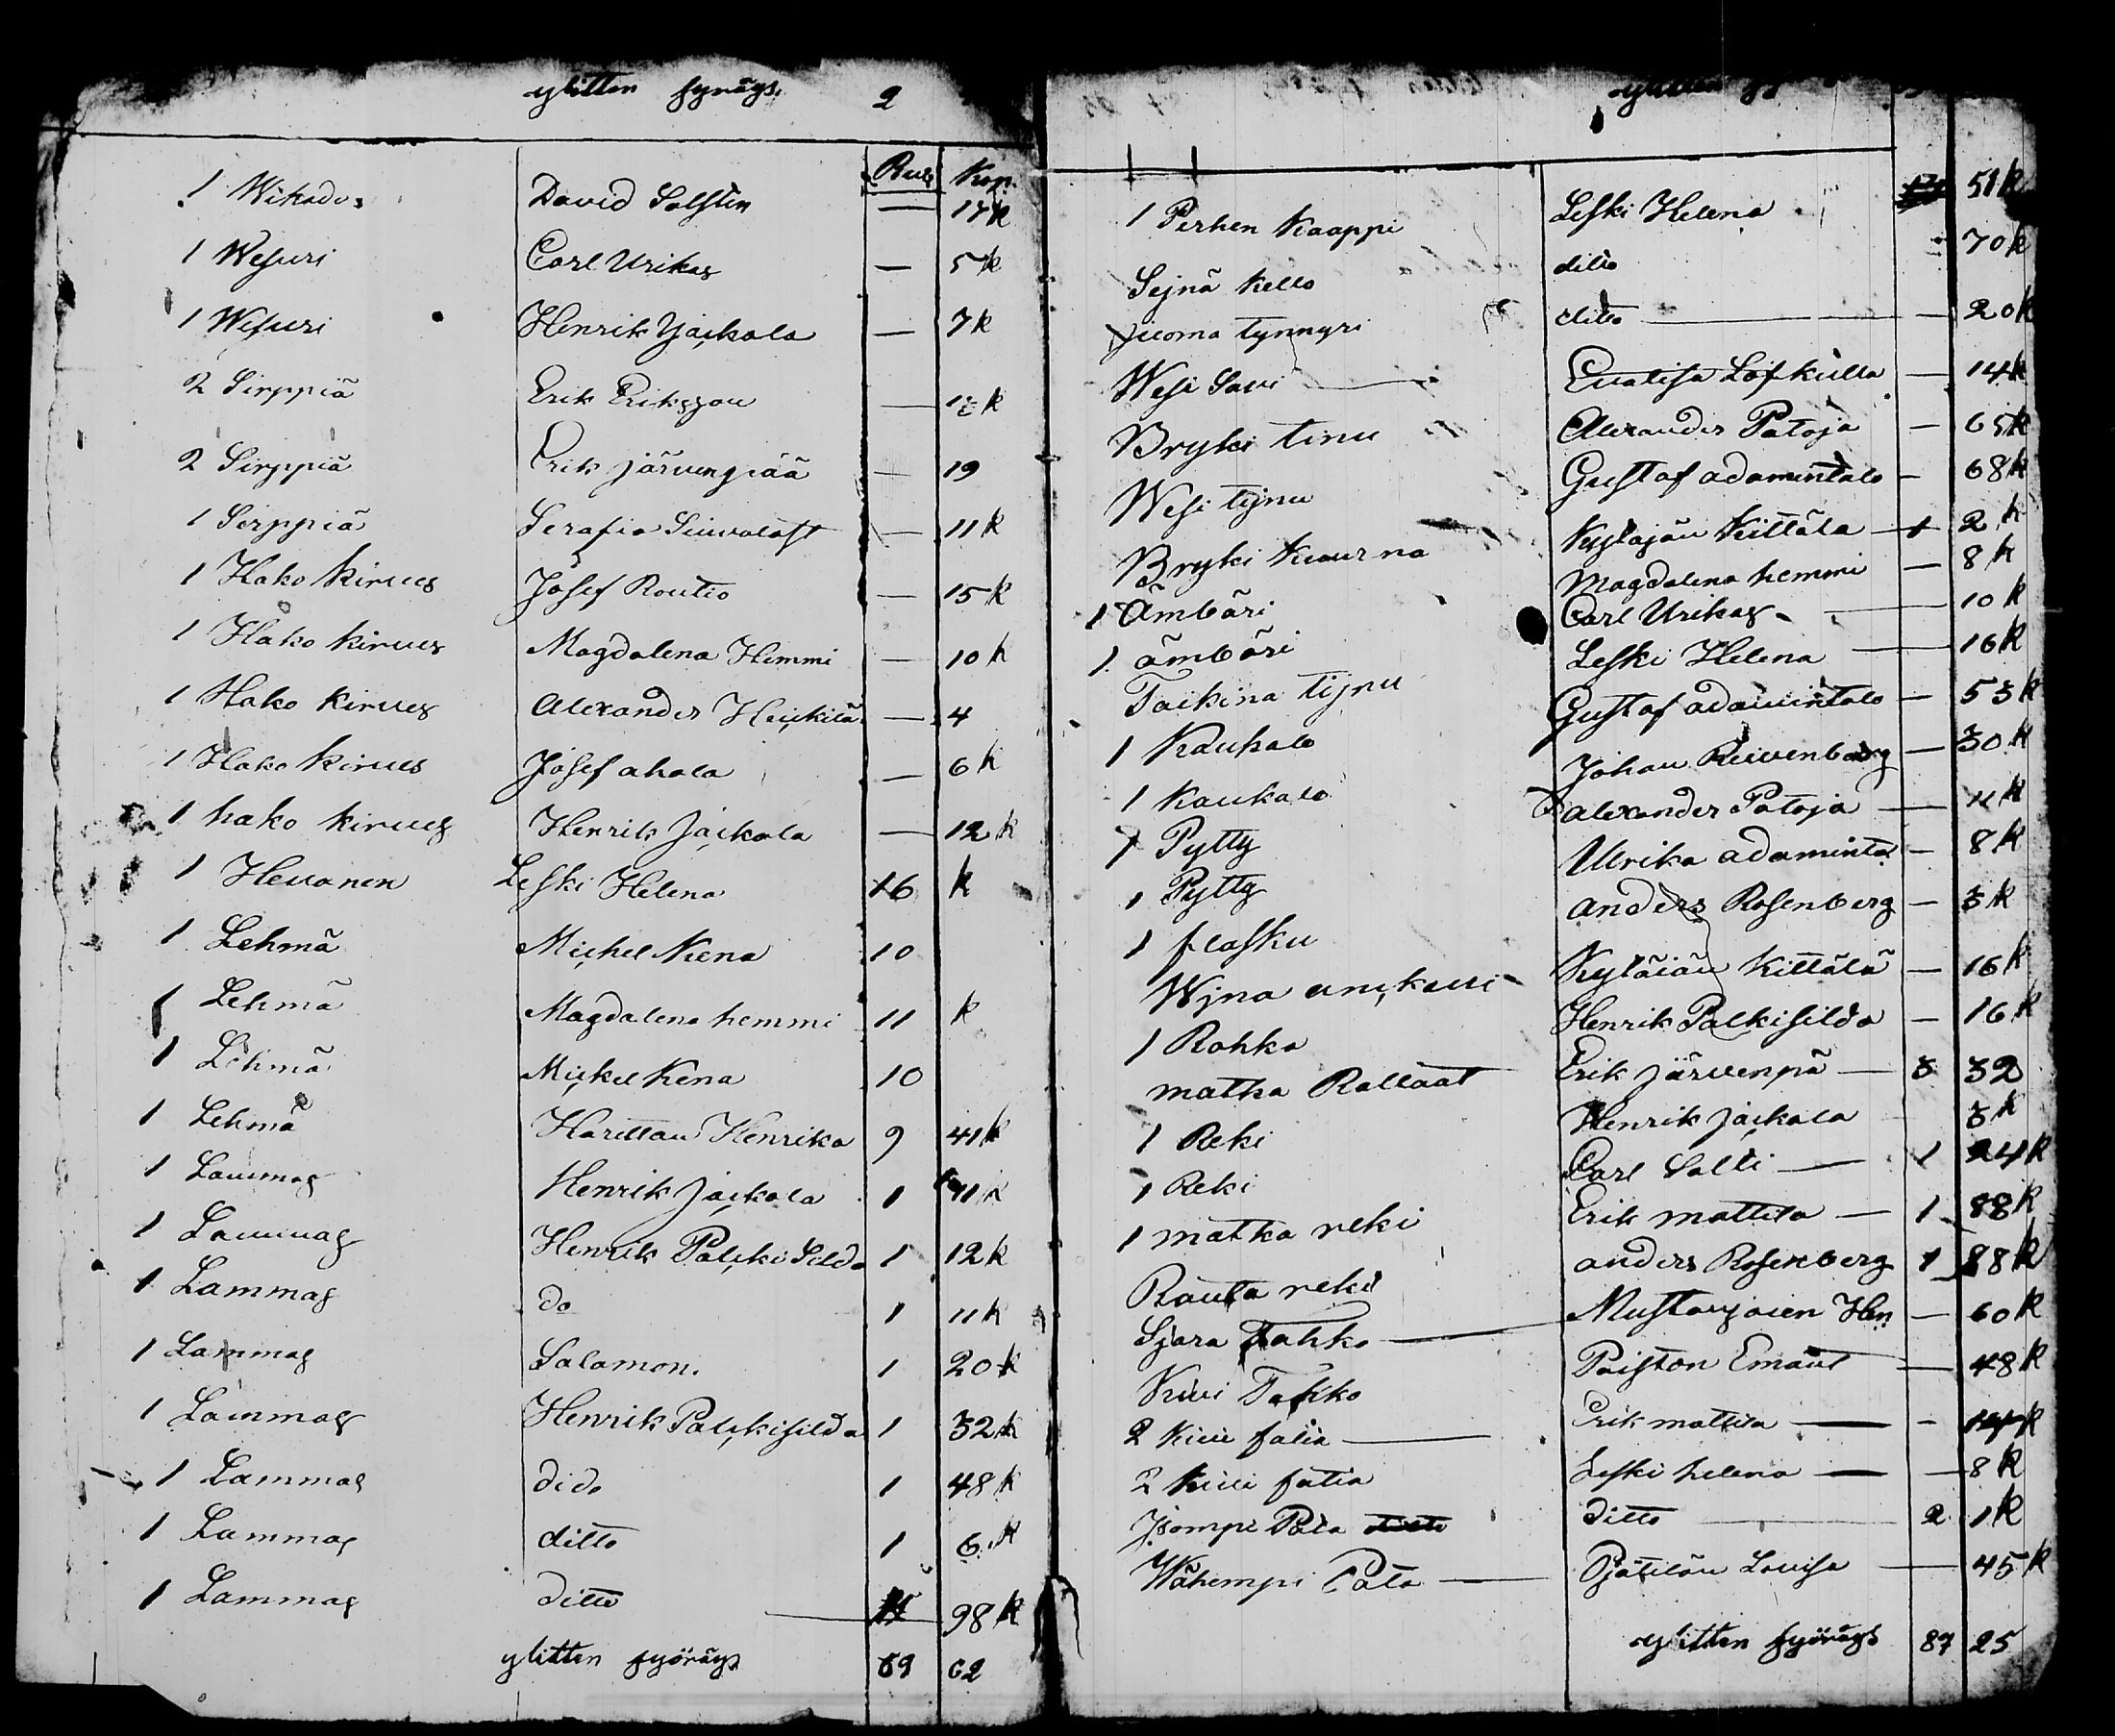 ylitten fyräys. 2
Rup Kop.
1 Wikado David Salsten — 17k
1 Wesuri Carl Urikas — 5k
1 Wesuri Henrik Jäickala — 7k
2 Sirppiä Erik Eriksson — k
2 Sirppiä Erik järvenpää — 19
1 Sirppiä Serafia — 11k
1 Hako kirves Josef Routio — 15k
1 Hako kirves Magdalena Hemmi — 10k
1 Hako kirves Alexander Heickilä — 4
1 Hako kirves Josef ahola — 6k
1 hako kirves Henrik Jäickala — 12k
1 Hevonen Leski Helena 16 k
1 Lehmä Michel Kena 10
1 Lehmä Magdalena hemmi 11 k
1 Lehmä Mickel Kena 10
1 Lehmä Harittau Henrika 9 41k
1 Lammas Henrik Jäickala 1 41k
1 Lammas Henrik Palckisilda 1 12k
1 Lammas do 1 11k
1 Lammas Salamon. 1 20k
1 Lammas Henrik Palckisilda 1 32k
1 Lammas dido 1 48k
1 Lammas ditto 1 6k
1 Lammas ditto 98k
ylitten fyöräys 69 62
ylitten
1 Perhen Kaappi Leski Helena 51k
Sejnä kello ditto 70k
Juoma tynnyri ditto — 20k
Wesi Savi — Evalisa Löfkulla — 14k
Bryki tinu Alexander Patoja — 65k
Wesi tijnu Gustaf adamintalo — 68k
Bryki Kuurna Kittälä — 1 2k
1 Ämbäri Magdalena hemmi — 8k
1 ämbäri Carl Urikas — 10k
Taikina tijnu Leski Helena — 16k
1 Kaukalo Gustaf adamintalo — 53k
1 Kaukalo Johan Reivenbärg — 30k
1 Pytty Alexander Patoja — 11k
1 Pytty Ulrika adaminta — 8k
1 flasku anders Rosenberg — 3k
Wjna anckuri Kyläjän Kittälä — 16k
1 Rahka Henrik Palkisilda — 16k
matka Rattaat Erik järvenpä — 3 32
1 Reki Henrik jäickala 3k
1 Reki Carl Salli — 1 24k
1 matka reki Erik mattila — 1 88k
Rauta reki anders Rosenberg 1 88k
Sjara Tahko — Mustanjoien Hen — 60k
Kivi Tahko Poiston Emänt — 48k
2 kivi fatia — Erik mattila —
2 kivi fatia Leski helena — 8k
Isompi Pata ditto — 2 1k
Wähempi Pata — Pjätilän Lovisa — 45k
ylitten fyöräys 87 25